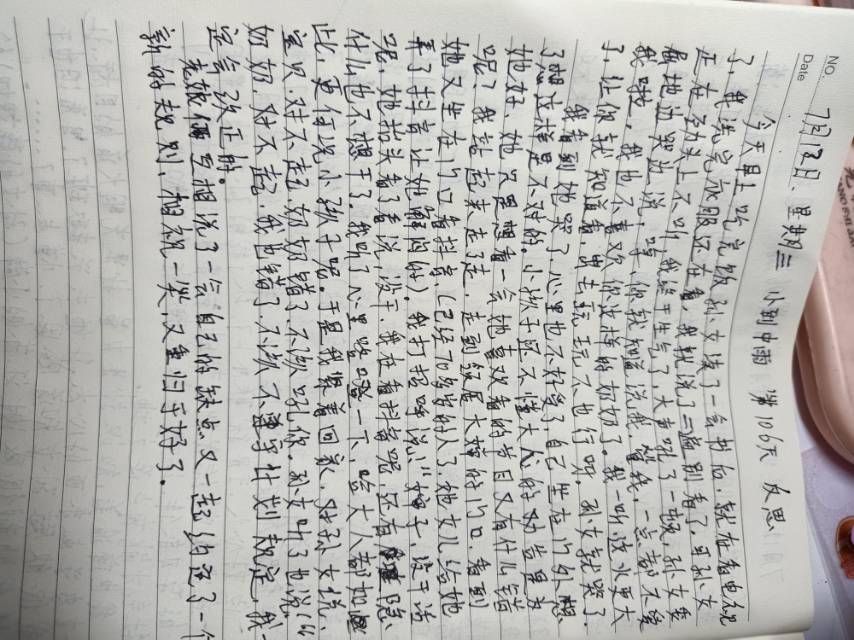 NO.
Date 7月18日、星期三 小到中雨 第106天 反思
今天早上吃完饭孙女读了一会书后,就在看电视
了,我洗完衣服还在看,我就说了三遍别看了,可孙女
正在劲头上不听,我终于生气了,大声吼了一顿,孙女委
屈地边哭边说,哼,你就知道说我,管我,一点都不爱
我啦,我也不喜欢你这样的奶奶了。我一听这火更大
了,让你我知道看,出去玩玩不也行呗。孙女就哭了。
我看到她哭了心里也不好受了自己坐在门外想
了想这样是不对的。小孩子还不懂大人的
她好,她只是想看一会她喜欢看的节目又有什么错
呢?我站起来走了走,走到邻居大嫂的门口,看到
她又坐在门口看抖音(已经70多岁的人了她女儿给她
弄了抖音让她解闷的)。我打招呼说"婶子,没干活
呢,她抬头看了看说,没干,我在看抖音呢,还有
什么也不想干了。我听了心里咯噔一下,哈大人都如
此,更何况小孩子呢。于是我紧着回家,对孙女说,
宝贝,对不起,奶奶错了不该吼你。孙女听了也说,"
奶奶,对不起,我也错了,不该不遵守计划规定,我一
定会改正的。
老姥俩互相说了一会自己的缺点又一起约定了一个
新的规则,相视一笑,又重归于好了。